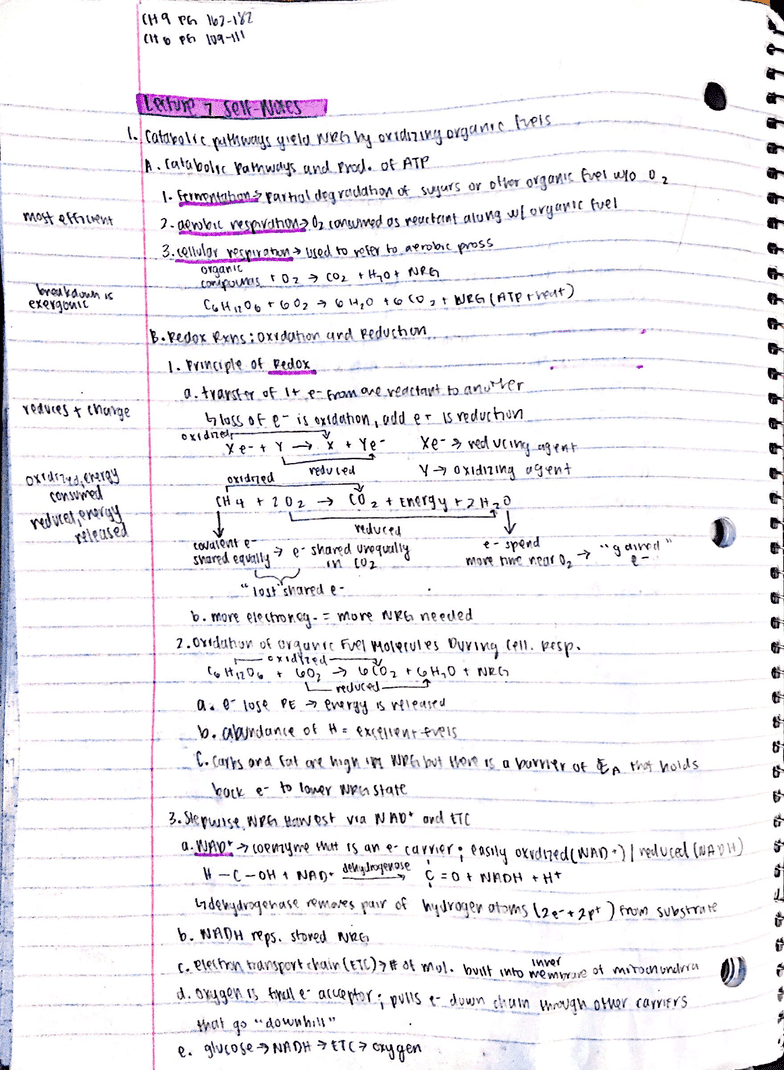 CH 9 PG 162-182
CH 6 PG 109-111
Lecture 7 Self-Notes
1. Catabolic pathways yield NRG by oxidizing organic fuels
A. Catabolic Pathways and Prod. of ATP
1. fermentation → partial degradation of sugars or other organic fuel w/o O2
most efficient
2. aerobic respiration → O2 consumed as reactant along w/ organic fuel
3. cellular respiration → used to refer to aerobic pross
organic compounds + O2 → CO2 + H2O + NRG
breakdown is exergonic
C6H12O6 + 6O2 → 6H2O + 6CO2 + NRG (ATP + heat)
B. Redox Rxns: Oxidation and Reduction
1. Principle of Redox
a. transfer of 1+ e- from one reactant to another
reduces + charge
↳ loss of e- is oxidation, add e- is reduction
oxidized
Xe- + Y → X + Ye- Xe- → reducing agent
reduced Y → oxidizing agent
oxidized, energy consumed
reduced, energy released
oxidized
CH4 + 2O2 → CO2 + Energy + 2H2O
reduced
covalent e- shared equally → e- shared unequally in CO2
e- spend more time near O2 → "gained" e-
"lost" shared e-
b. more electroneg. = more NRG needed
2. Oxidation of Organic Fuel Molecules During Cell. Resp.
oxidized
C6H12O6 + 6O2 → 6CO2 + 6H2O + NRG
reduced
a. e- lose PE → energy is released
b. abundance of H = excellent fuels
c. carbs and fat are high in NRG but there is a barrier of EA that holds
back e- to lower NRG state
3. Stepwise NRG Harvest via NAD+ and ETC
a. NAD+ → coenzyme that is an e- carrier; easily oxidized (NAD+) / reduced (NADH)
H-C-OH + NAD+ dehydrogenase → C=O + NADH + H+
↳ dehydrogenase removes pair of hydrogen atoms (2e- + 2p+) from substrate
b. NADH reps. stored NRG
c. electron transport chain (ETC) → # of mol. built into inner membrane of mitochondria
d. oxygen is final e- acceptor; pulls e- down chain through other carriers
that go "downhill"
e. glucose → NADH → ETC → oxygen